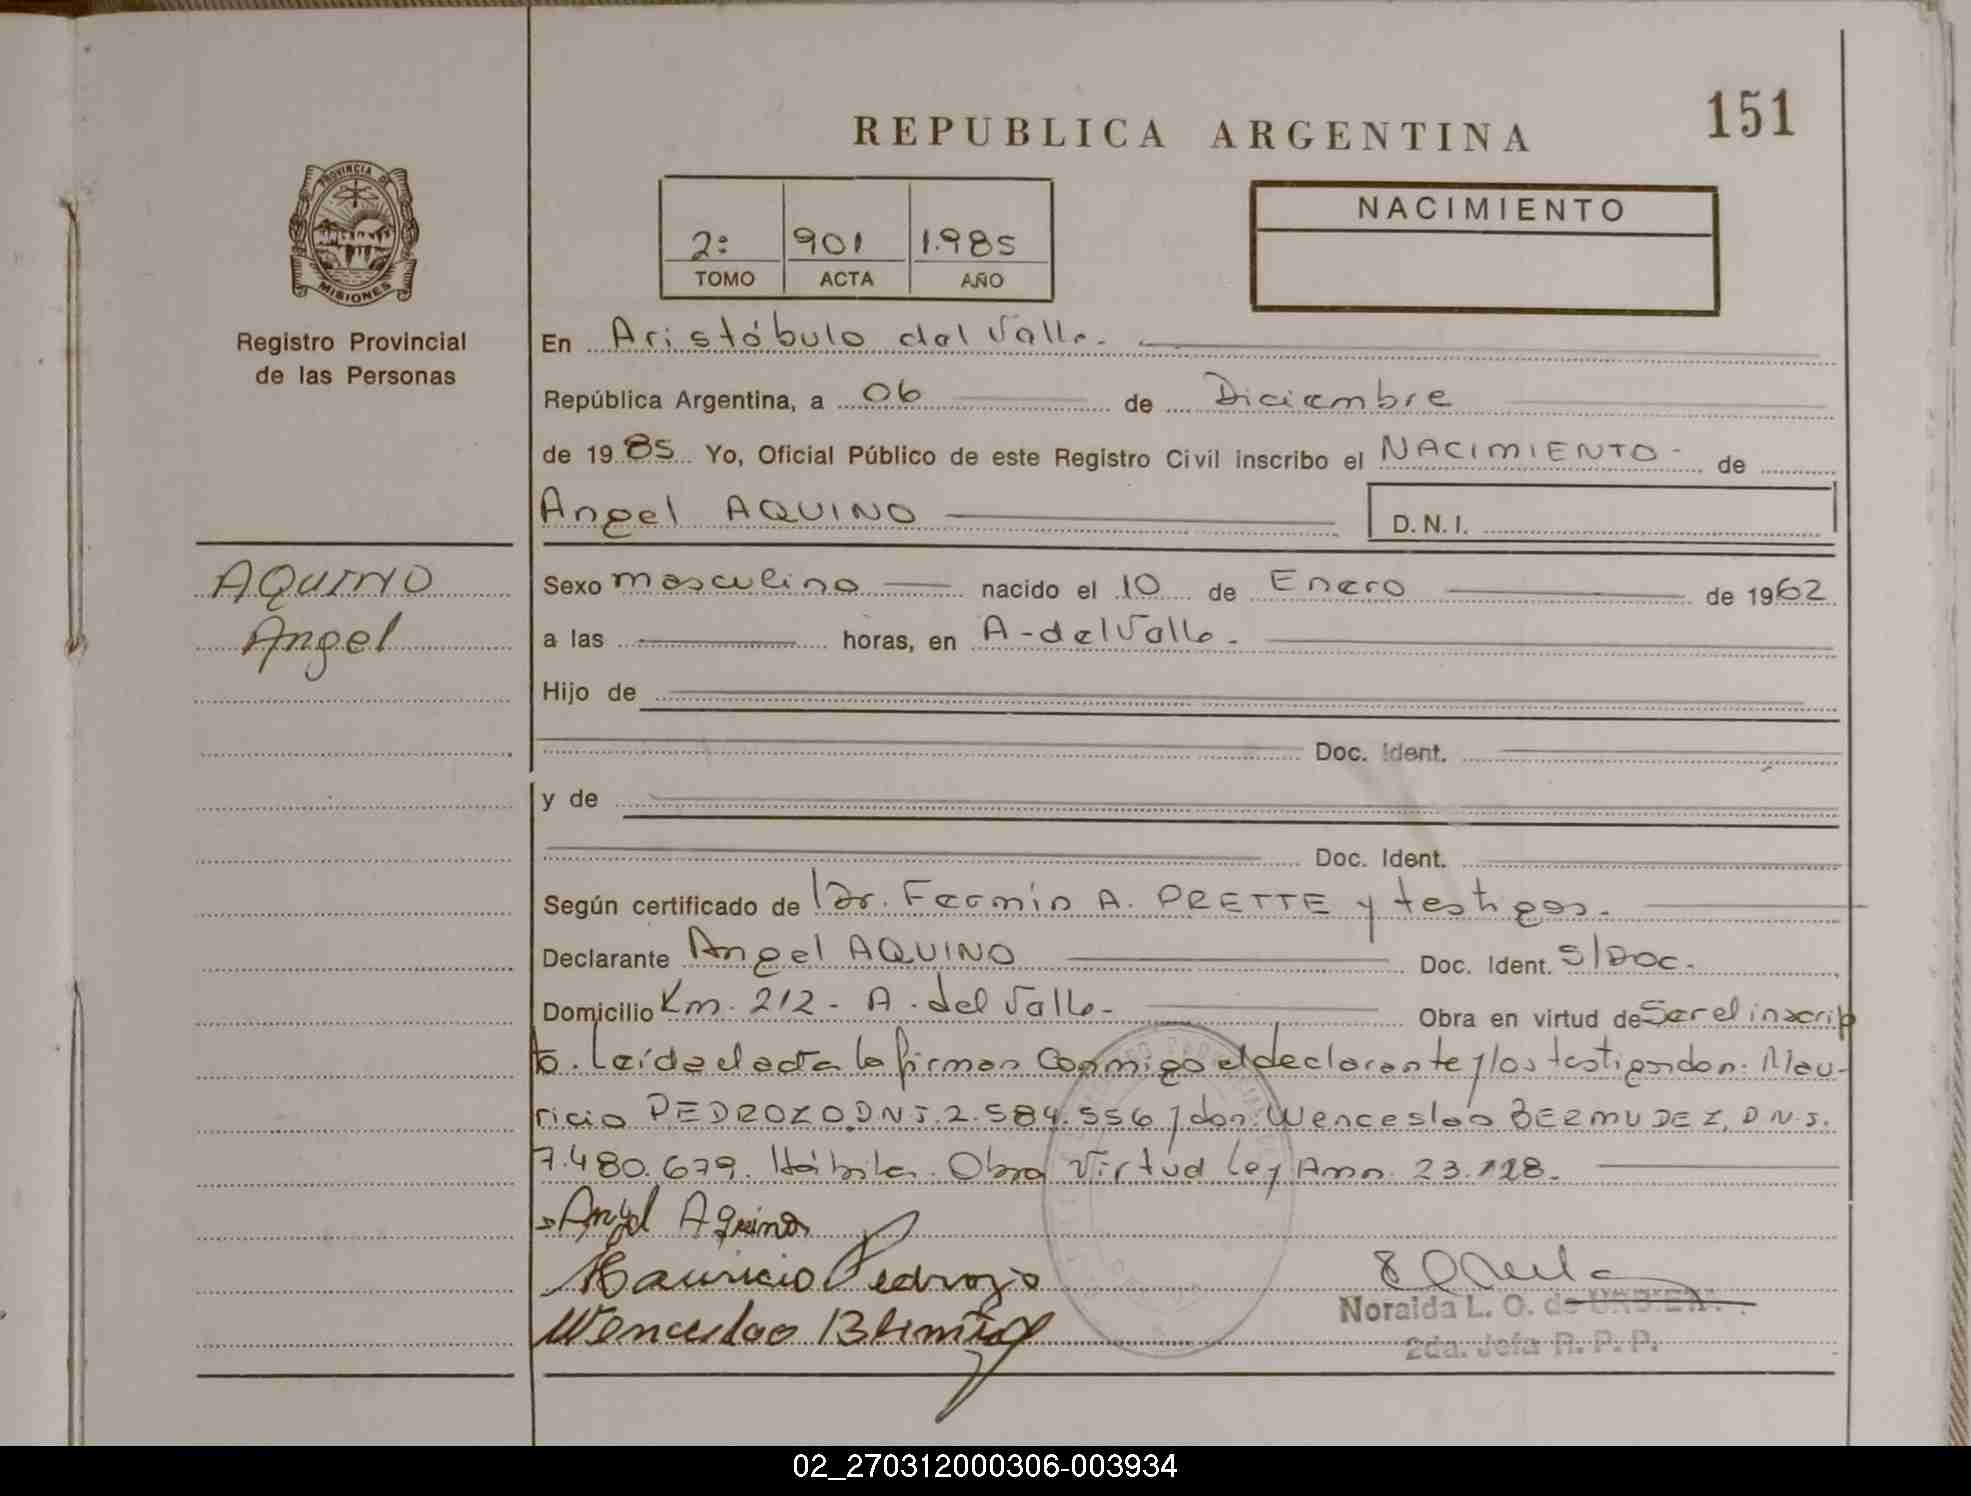 REPUBLICA ARGENTINA
151
PROVINCIA DE
MISIONES
Registro Provincial
de las Personas
2º 901 1.985
TOMO ACTA AÑO
NACIMIENTO
En Aristóbulo del Valle.
República Argentina, a 06 de Diciembre
de 1985 Yo, Oficial Público de este Registro Civil inscribo el NACIMIENTO - de
Angel AQUINO
D.N.I.
AQUINO
Angel
Sexo masculino nacido el 10 de Enero de 1962
a las horas, en A-del Valle.
Hijo de
Doc. Ident.
y de
Doc. Ident.
Según certificado de Dr. Fermín A. PRETTE y testigos.
Declarante Angel AQUINO Doc. Ident. S/Doc.
Domicilio Km. 212 - A. del Valle - Obra en virtud de Ser el inscrip
to. Leída el acta la firman conmigo el declarante y los testigos don: Mau-
ricio PEDROZO D.N.I. 2.584.556 y don: Wenceslao BERMUDEZ, D.N.I.
7.480.679. Hábiles. Obra Virtud Ley Amn. 23.128.
Angel Aquino
Mauricio Pedrozo
Wenceslao
Noraida L. O. de
2da. Jefa R. P. P.
02_270312000306-003934